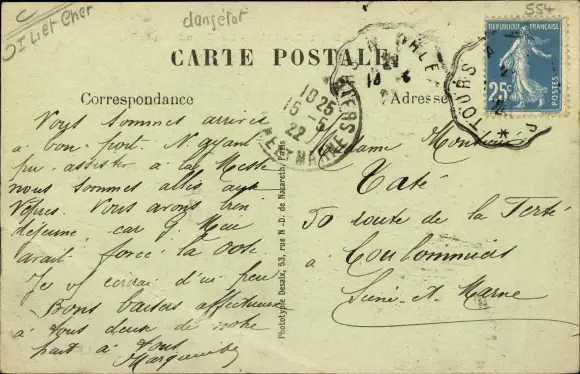 Loir et Cher
554
CARTE POSTALE
Correspondance
Adresse
RÉPUBLIQUE FRANÇAISE
25c
POSTES
TOURS
1925
15-5
22
Vous sommes arrivés
à bon port. N'ayant
pu assister à la Messe
nous sommes allés aux
Vêpres. Vous avons bien
déjeuné car G. Meu
avait forcé la dose
Je vs écrirai d'ici peu
Bons baisers affectueux
à vous deux de notre
part à tous
Marguerite
Madame Monsieur
Taté
50 route de la Ferté
à Coulommiers
Seine-et-Marne
Phototypie Desaix, 53, rue N.-D. de Nazareth, Paris